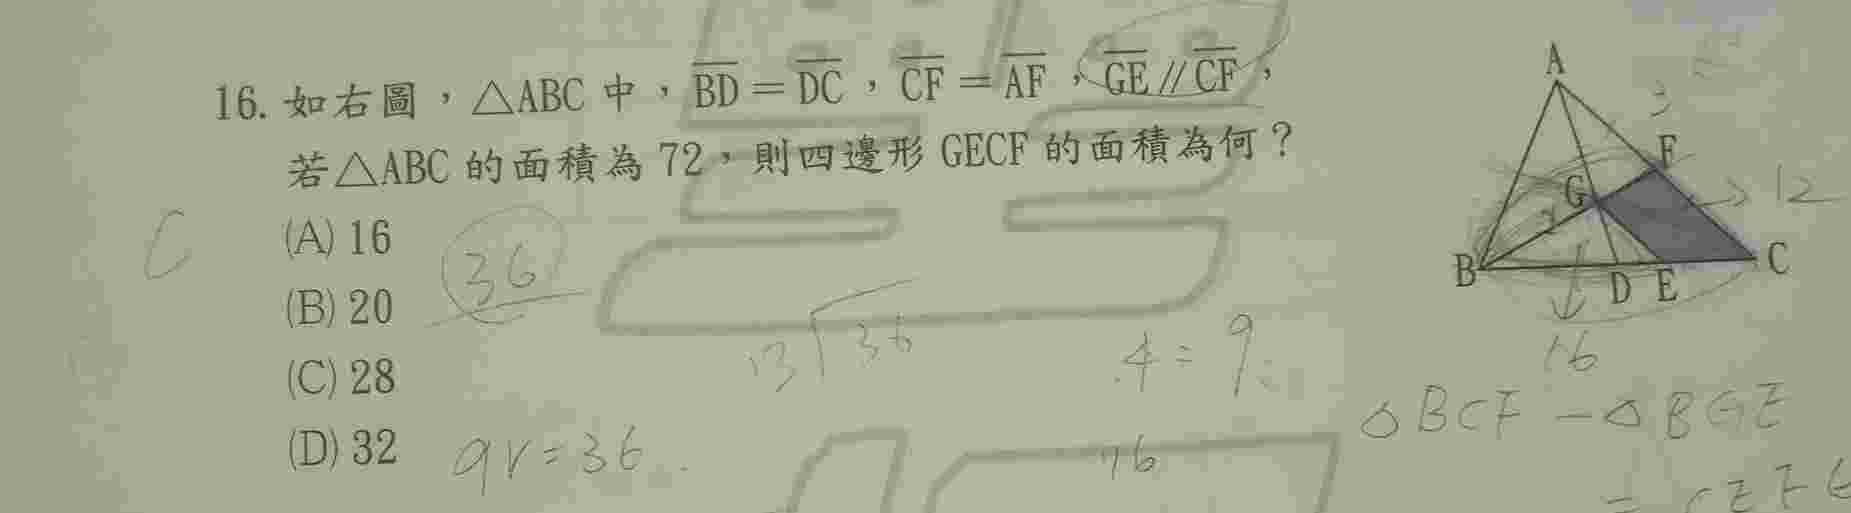 16. 如右圖，△ABC 中，BD＝DC，CF＝AF，GE∥CF，
若△ABC 的面積為 72，則四邊形 GECF 的面積為何？
(A) 16
(B) 20
(C) 28
(D) 32
C
36
36
4=9
9r=36
16
A
3
F
G
2
12
B
D
E
C
16
△BCF-△BGE